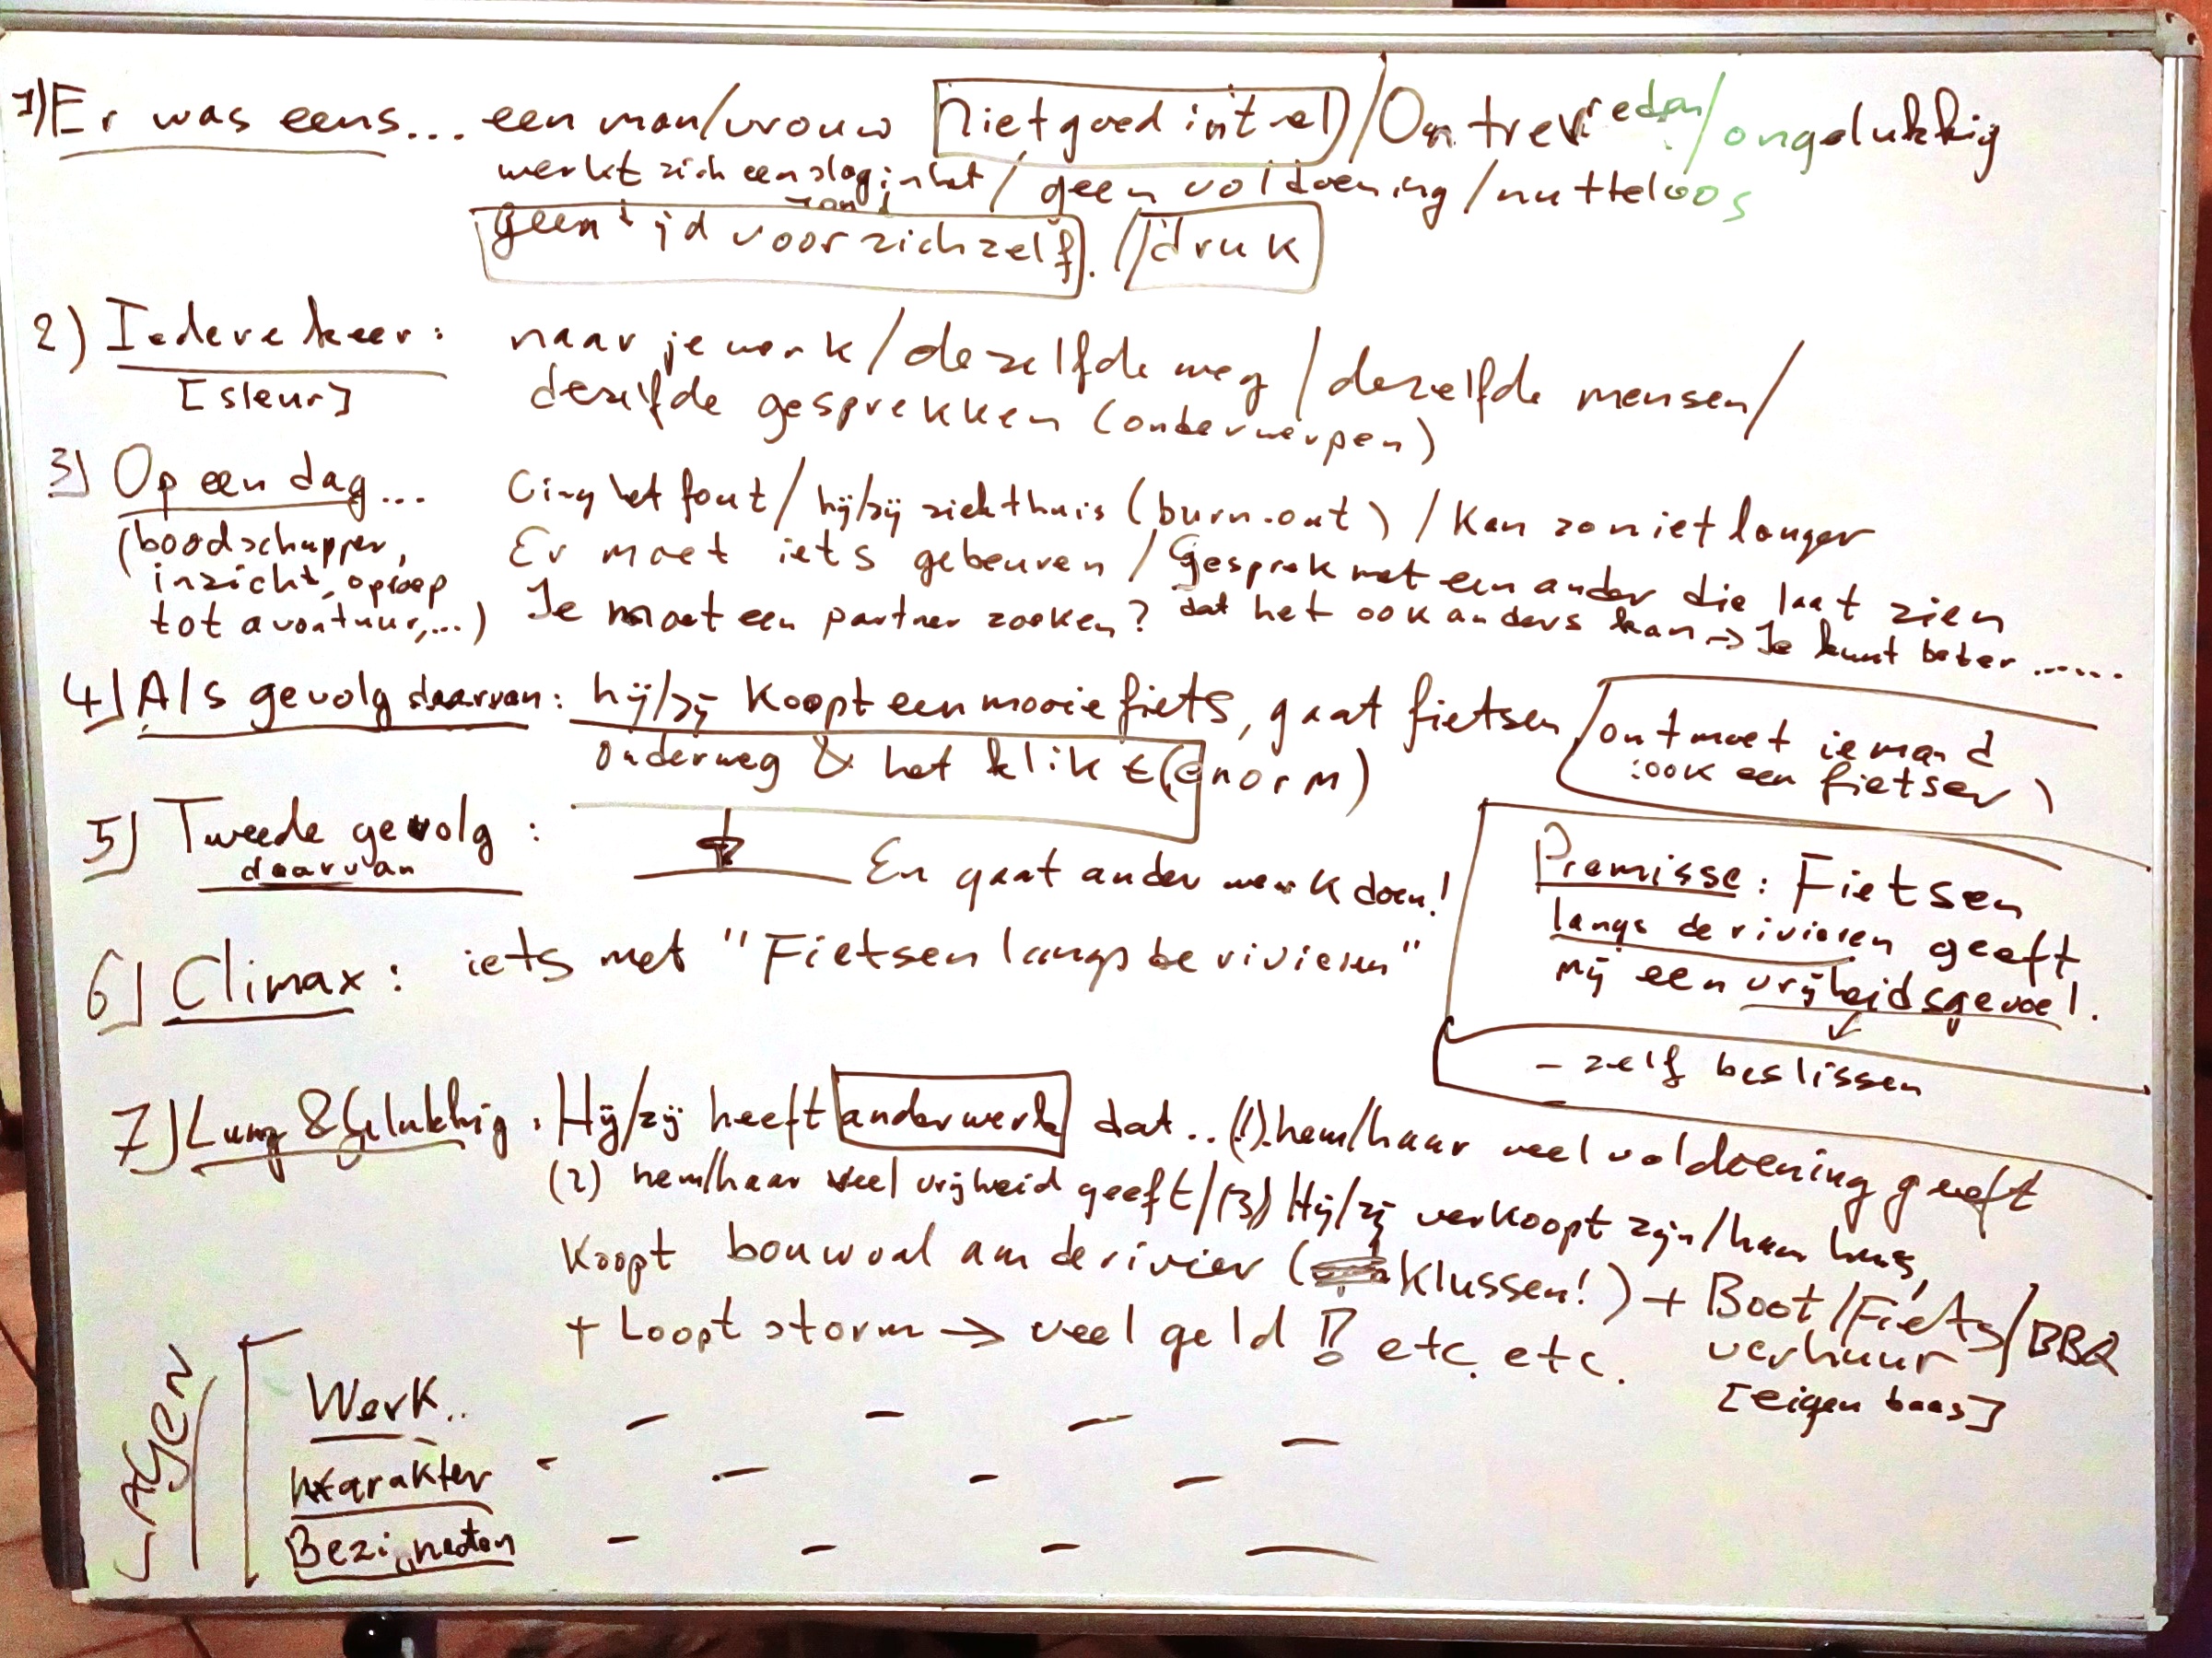 1) Er was eens... een man/vrouw niet goed in't vel / Ontevreden / ongelukkig
werkt zich een slag in het rond / geen voldoening / nutteloos
geen tijd voor zichzelf. / druk
2) Iedere keer: naar je werk / dezelfde weg / dezelfde mensen /
[sleur] dezelfde gesprekken (onderwerpen)
3) Op een dag... Ging het fout / hij/zij ziek thuis (burn-out) / Kan zo niet langer
(boodschapper, Er moet iets gebeuren / Gesprek met een ander die laat zien
inzicht, oproep dat het ook anders kan → Je kunt beter ......
tot avontuur,...) Je moet een partner zoeken?
4) Als gevolg daarvan: hij/zij koopt een mooie fiets, gaat fietsen, ontmoet iemand
onderweg & het klikt (enorm) : ook een fietser)
5) Tweede gevolg:
daarvan En gaat ander werk doen!
Premisse: Fietsen
langs de rivieren geeft
mij een vrijheidsgevoel.
- zelf beslissen
-
6) Climax: iets met "Fietsen langs de rivieren"
7) Lang & Gelukkig: Hij/zij heeft ander werk dat.. (1). hem/haar veel voldoening geeft
(2) hem/haar veel vrijheid geeft / (3) Hij/zij verkoopt zijn/haar huis,
koopt bouwval aan de rivier (klussen!) + Boot/Fiets/BBQ
verhuur
+ Loopt storm → veel geld !! etc. etc.
[eigen baas]
LAGEN
Werk.. - - - -
karakter - - - -
Bezigheden - - - -